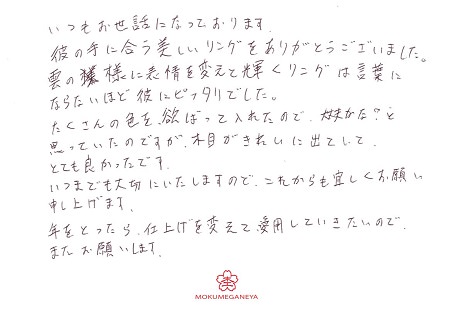 いつもお世話になっております.
彼の手に合う美しいリングをありがとうございました。
雲の様に表情を変えて輝くリングは言葉に
ならないほど彼にピッタリでした。
たくさんの色を欲ばって入れたので、大丈夫かな?と
思っていたのですが、木目がきれいに出ていて、
とても良かったです.
いつまでも大切にいたしますので、これからも宜しくお願い
申し上げます.
年をとったら、仕上げを変えて愛用していきたいので、
またお願いします.
MOKUMEGANEYA